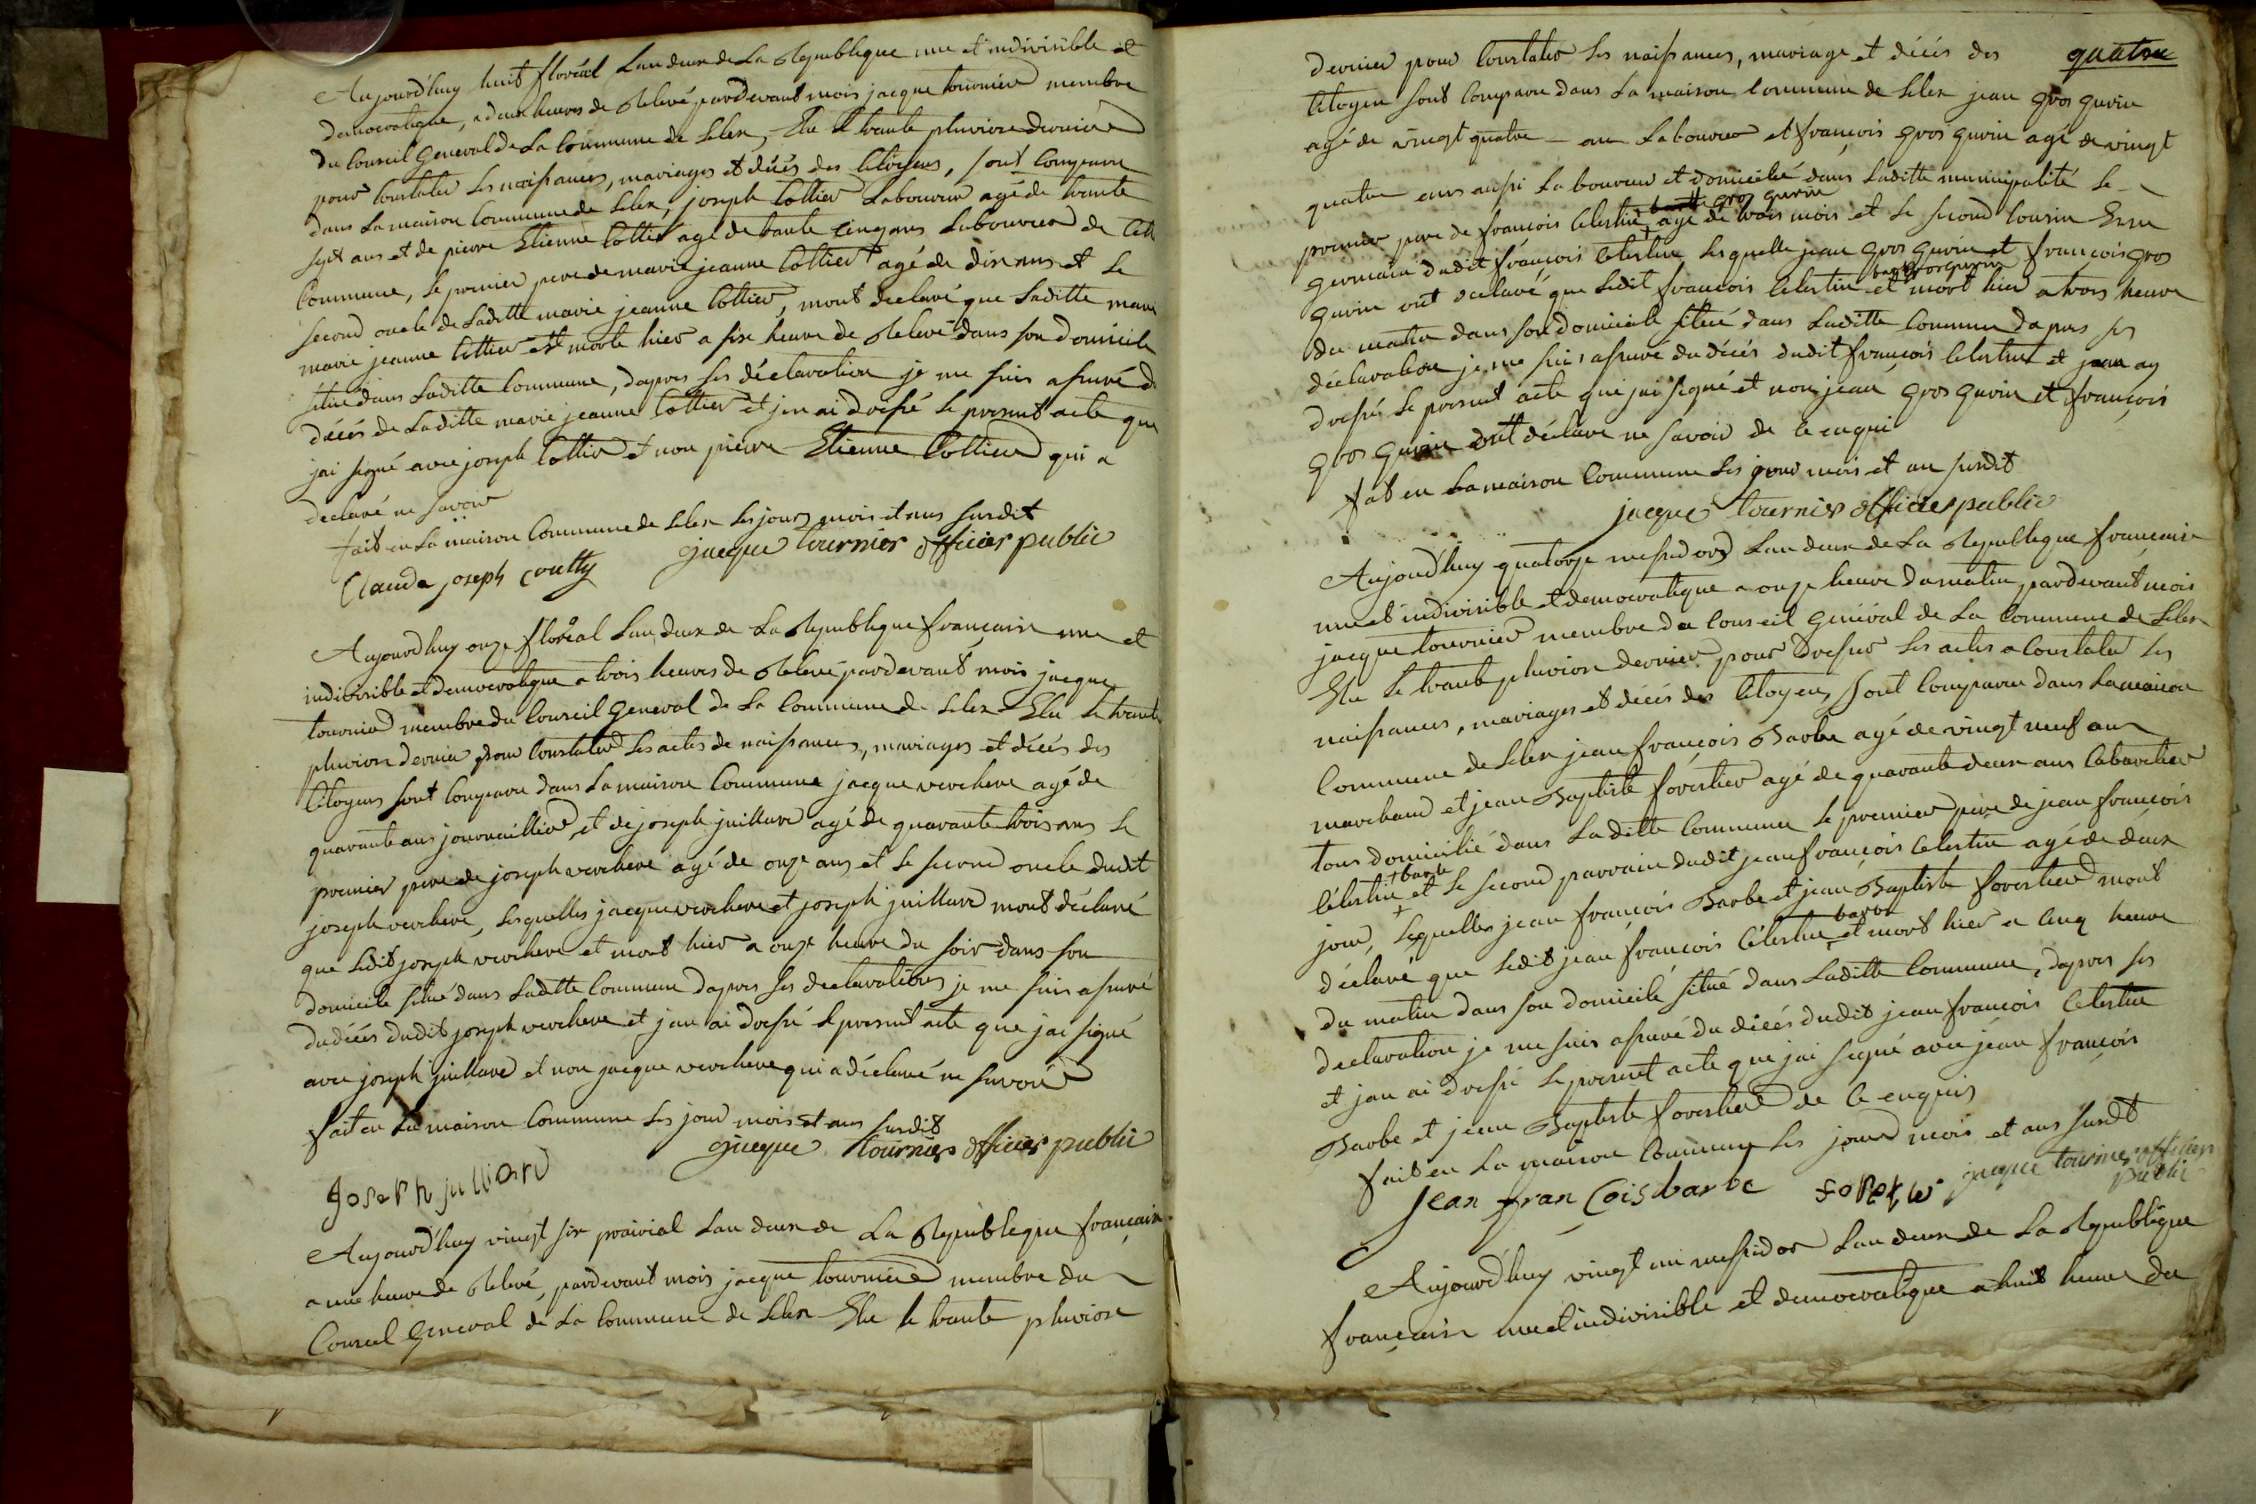 Aujourd'huy huit floréal Lan deux de La Republique une et indivisible et
democratique, a deux heures de Relevé pardevant mois jacque tournier membre
du Conseil General de La Commune de Lelex, Elu Le trante pluviose dernier
pour Constater Les naissances, mariages et décés des Citoyens, sont Comparu
dans La maison Commune de Lelex, joseph Cottier Laboureur agé de trante
sept ans et de pierre Etienne Cottier agé de trante cinq ans Laboureur de Cette
Commune, Le premier pere de marie jeanne Cottier agé de dix ans et Le
second oncle de Laditte marie jeanne Cottier, mont declaré que Laditte marie
marie jeanne Cottier est morte hier a six heure de Relevé dans son domicile
situé dans Laditte Commune, dapres ses déclaration je me suis assuré du
décés de Laditte marie jeanne Cottier et jen ai dressé Le present acte que
jai signé avec joseph Cottier et non pierre Etienne Cottier qui a
declaré ne savoir
fait en La maison Commune de Lelex Les jour mois et ans susdit
jacque tournier officier public
Claude joseph
Aujourd'huy onze floréal Lan deux de La Republique francaise une et
indivisible et democratique a trois heures de Relevé pardevant mois jacque
tournier membre du Conseil General de La Commune de Lelex Elu Le trante
pluviose dernier pour Constater Les actes de naissances, mariages et décés des
Citoyens sont Comparu dans La maison Commune jacque verchere agé de
quarante ans journaillier et de joseph juillard agé de quarante trois ans Le
premier pere de joseph verchere agé de onze ans et Le second oncle dudit
joseph verchere, Lesquelles jacque verchere et joseph juillard mont déclaré
que Ledit joseph verchere et mort hier a onze heure du soir dans son
domicile situé dans Laditte Commune dapres ses declarations je me suis assuré
du décés dudit joseph verchere et jen ai dressé Le present acte que jai signé
avec joseph juillard et non jacque verchere qui a déclaré ne savoir
fait en La maison Commune Les jour mois et ans susdit
jacque tournier officier public
Joseph julliard
Aujourd'huy vingt six prairial Lan deux de La Republique francaise
a une heure de Relevé, pardevant mois jacque tournier membre du
Conseil General de La Commune de Lelex Elu Le trante pluviose
quatre
dernier pour Constater Les naissances, mariage et décés des
Citoyen sont Comparu dans La maison Commune de Lelex jean gros gurin
agé de vingt quatre - an Laboureur et françois gros gurin agé de vingt
quatre ans aussi Laboureur et domicilié dans Laditte municipalité Le
gros gurin
premier pere de françois Celestin + agé de trois mois et Le second Cousin
germain dudit françois Celestin Lesquelle jean gros gurin et françois gros
gros gurin
gurin ont declaré que Ledit françois Celestin et mort hier a trois heure
du matin dans son domicile situé dans Laditte Commune dapres ses
déclaration je me suis assuré du décés dudit françois Celestin et jean ay
dressé Le present acte que jai signé et non jean gros gurin et françois
gros gurin ont déclare ne savoir de Ce enquis
fait en La maison Commune Les jour mois et an susdit
jacque tournier officier public
Aujourd'huy quatorze messidor Lan deux de La Republique française
une et indivisible et democratique a onze heure du matin pardevant mois
jacque tournier membre du Conseil Général de La Commune de Lelex
Elu Le trante pluviose dernier pour dresser Les actes a Constater Les
naissances, mariages et décés des Citoyens sont Comparu dans La maison
Commune de Lelex jean françois Barbe agé de vingt neuf ans
marchand et jean Baptiste forestier agé de quarante deux ans Cabaretier
tous domicilié dans Laditte Commune Le premier père de jean françois
+ barbe
Célestin + et Le second parrain dudit jean françois Celestin agé de deux
jour, Lesquelles jean françois Barbe et jean Baptiste forestier mont
barbe
déclaré que Ledit jean françois Célestin et mort hier a Cinq heure
du matin dans son domicile situé dans Laditte Commune, dapres ses
declaration je me suis assuré du décés dudit jean françois Celestin
et jan ai dressé Le present acte que jai signé avec jean françois
Barbe et jean Baptiste forestier de Ce enquis
fait en La maison Commune Les jour mois et ans susdit
Jean fran Cois barbe jacque tournier officier
public
Aujourd'huy vingt un messidor Lan deux de La Republique
française une et indivisible et democratique a huit heure du